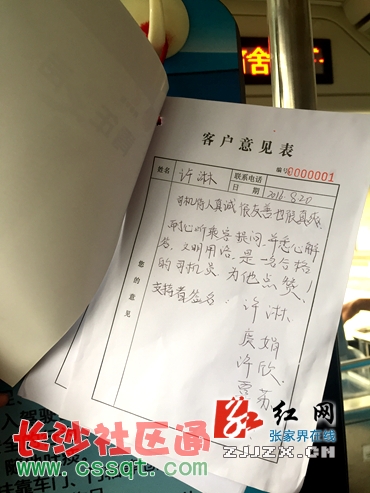 客户意见表
编号0000001
姓名 许淋 联系电话
日期 2016.9.20
您的意见
司机待人真诚很友善也很真爽
耐心听乘客提问,并悉心解
答,文明用语,是一名合格
的司机员,为他点赞!
支持者签名:许淋
虞娟
许欣
红网
张家界在线
ZJJZX.CN
长沙社区通
www.cssqt.com
入驾驶